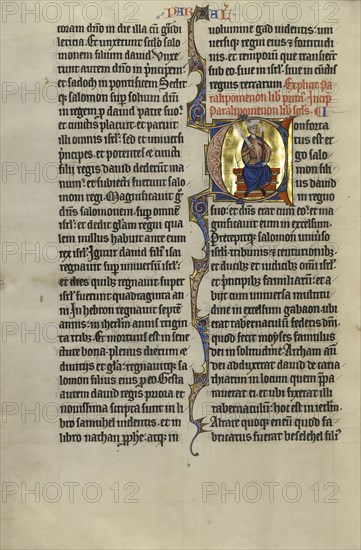 PARAL
coram dn̄o in die illa cū gn̄di
leticia. Et vnxerunt sc̄do salo
monem filium dauid. Vnxe
runt autem dn̄o in p̄ncipem
et sadoch in pontificem. Sedit
q̄ salomon sup solium dn̄i
in regem p dauid patre suo
et cunctis placuit et paruit
illi omnis isrl̄. sed et vniuersi
p̄ncipes et potentes et cuncti
filij regis dauid dederūt ma
num et subiecti fuerunt salo
moni regi. Magnificauit g̊
dn̄s salomonem sup omnem
isrl̄. et dedit gl̄am regni qua
lem nullus habuit ante eum
rex isrl̄. Igitur dauid filiꝰ isai
regnauit sup vniuersum isrl̄.
et dies quibꝫ regnauit super
isrl̄ fuerunt quadraginta an
ni. In hebron regnauit septē
annis. in ihrl̄m annis trigin
ta tribꝫ. Et mortuus est in sene
ctute bona plenus dierum et
diuitijs et gl̄a. regnauitq̄ sa
lomon filius eius p eo. Gesta
autem dauid regis priora et
nouissima scripta sunt in li
bro samuhel uidentis. et in
libro nathan p̄phe. atq̄ in
volumine gad uidentis. uni
uersiq̄ regni eius et fortitudi
nis et temporum que transier̄t
sub eo. siue in isrl̄. siue in cūctis
regnis terrarum. Explicit pa
ralipomenon lib prim̄. Incip
paralipomenon lib sc̄ds. I
Confortatus
est er
go salo
mon fili
us dauid
in regno
suo. et dn̄s erat cum eo. et ma
gnificauit eum in excelsum.
Precepitq̄ salomon uniu̓so
isrl̄i. tribunis et centurionibꝫ.
et ducibꝫ et iudicibꝫ om̄i isrl̄.
et p̄ncipibꝫ familiarū. et a
bijt cum uniuersa multitu
dine in excelsum gabaon. ubi
erat tabernaculū federis dn̄i.
quod fecit moyses famulus
dei in solitudine. Archam aūt
dei adduxerat dauid de caria
thiarim in locum quem p̄pa
rauerat ei. et ubi fixerat illi
tabernaculū. hoc est in ihrl̄m.
Altare quoq̄ eneū quod fa
bricatus fuerat beselehel filiꝰ